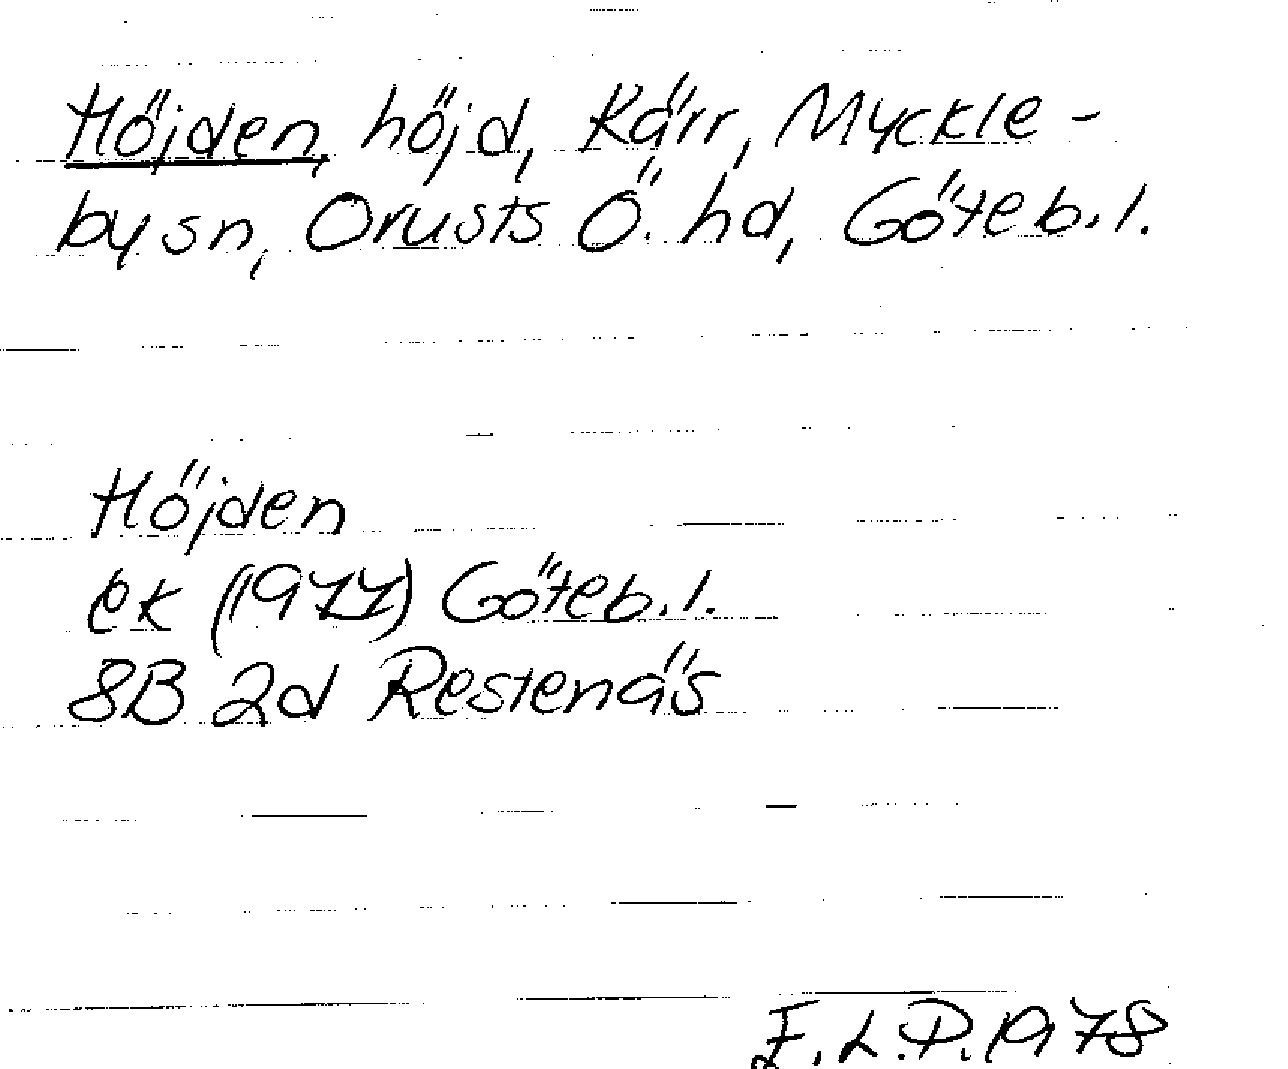 Höjden, höjd, Kärr, Myckle-
by sn, Orusts Ö. hd, Göteb.l.
Höjden
ek (1977) Göteb.l.
8B 2d Restenäs
E.L.P. 1978